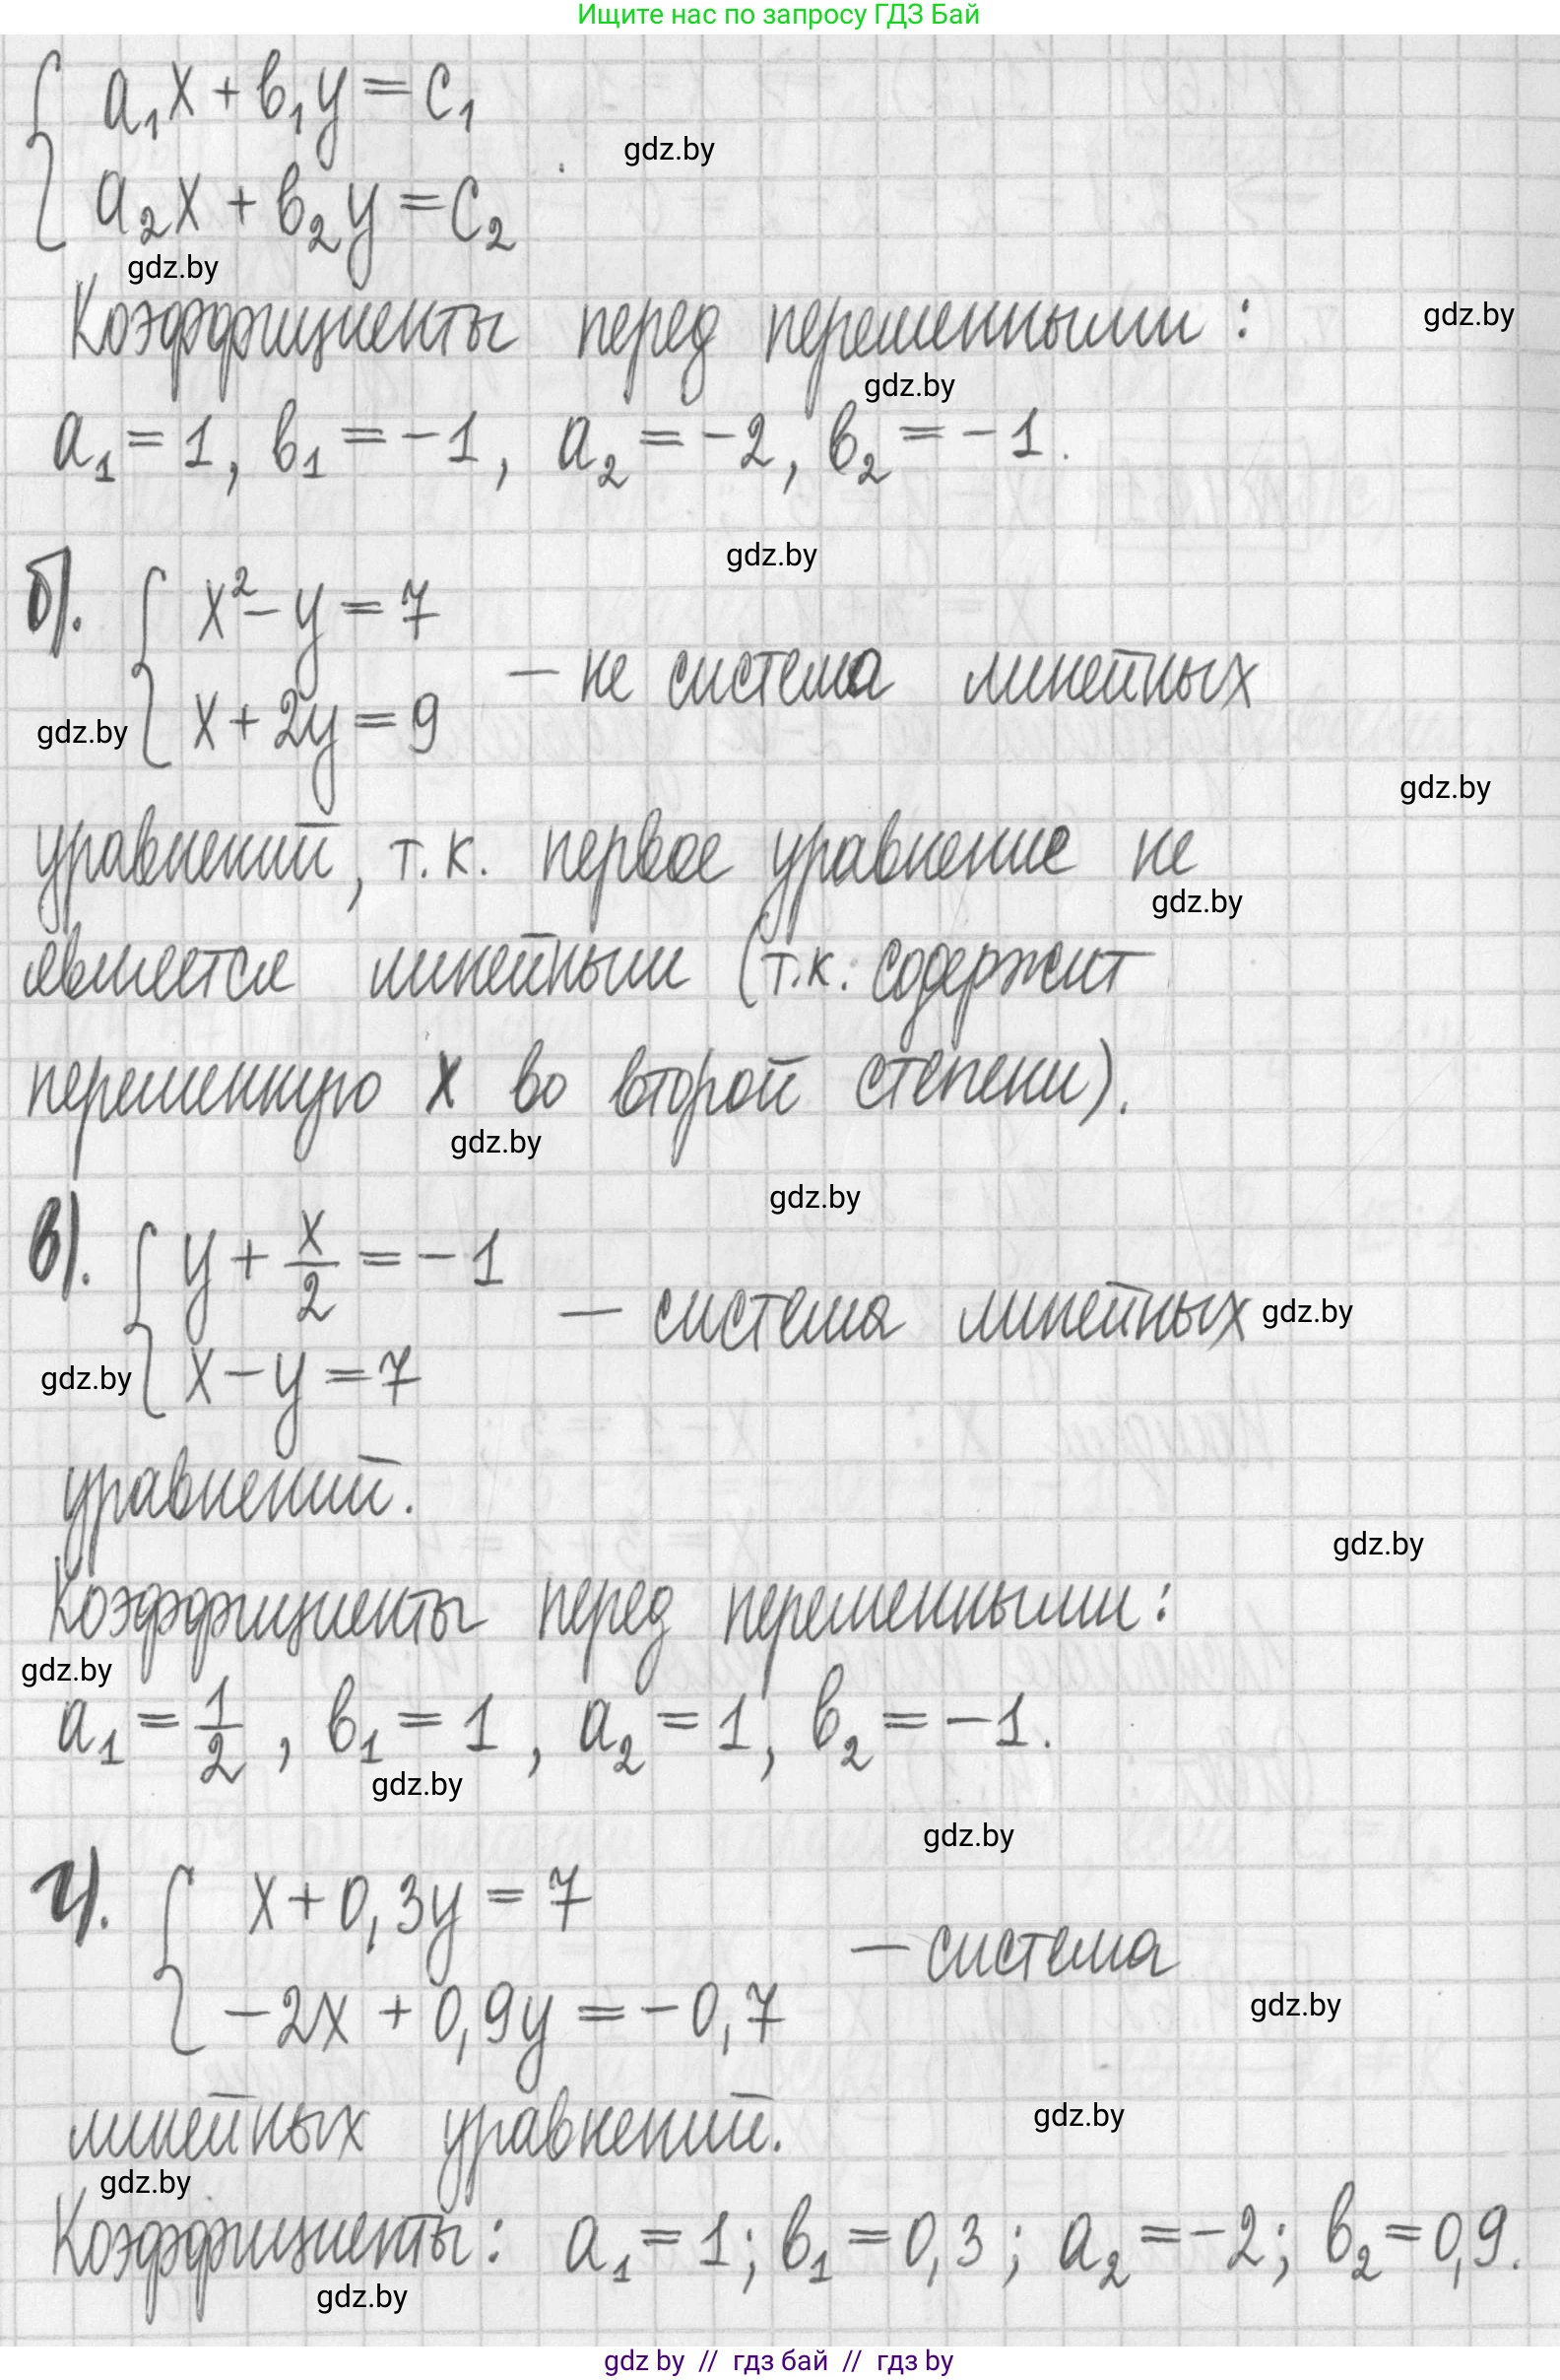 Ищите нас по запросу ГДЗ Бай
a₁x + b₁y = c₁
gdz.by
a₂x + b₂y = c₂
gdz.by
Коэффициенты перед переменными:
gdz.by
gdz.by
a₁ = 1, b₁ = -1, a₂ = -2, b₂ = -1.
gdz.by
б). x² - y = 7
x + 2y = 9 — не система линейных
gdz.by
gdz.by
уравнений, т.к. первое уравнение не
gdz.by
является линейным (т.к. содержит
переменную x во второй степени).
gdz.by
gdz.by
в). y + x/2 = -1
x - y = 7 — система линейных
gdz.by
gdz.by
уравнений.
gdz.by
Коэффициенты перед переменными:
gdz.by
a₁ = 1/2, b₁ = 1, a₂ = 1, b₂ = -1.
gdz.by
gdz.by
г). x + 0,3y = 7
-2x + 0,9y = -0,7 — система
gdz.by
линейных уравнений.
gdz.by
gdz.by
Коэффициенты: a₁ = 1; b₁ = 0,3; a₂ = -2; b₂ = 0,9.
gdz.by
gdz by // гдз бай // гдз by